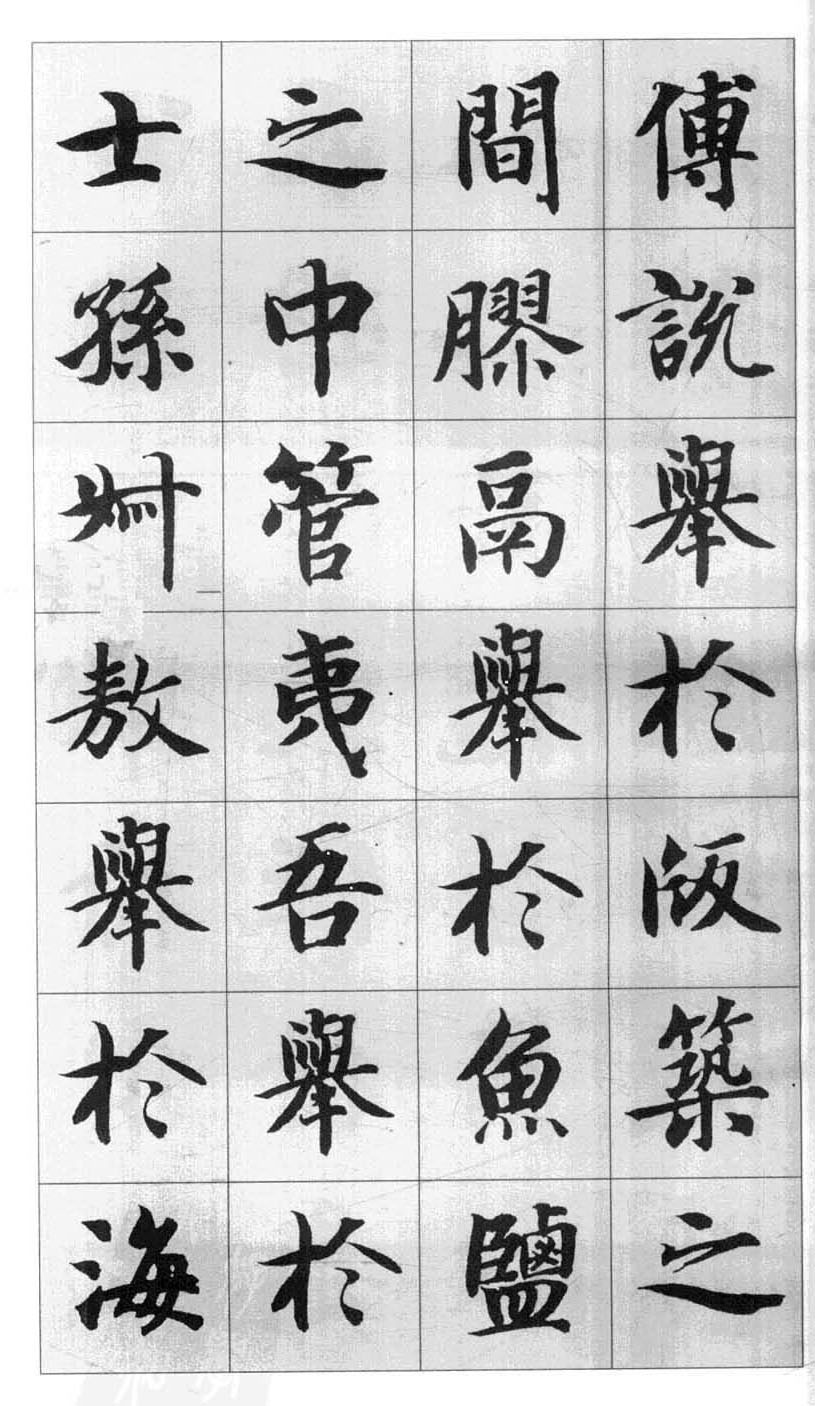 傅說舉於版築之
間膠鬲舉於魚鹽
之中管夷吾舉於
士孫叔敖舉於海